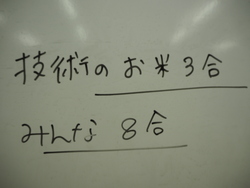 技術のお米3合
みんな 8合